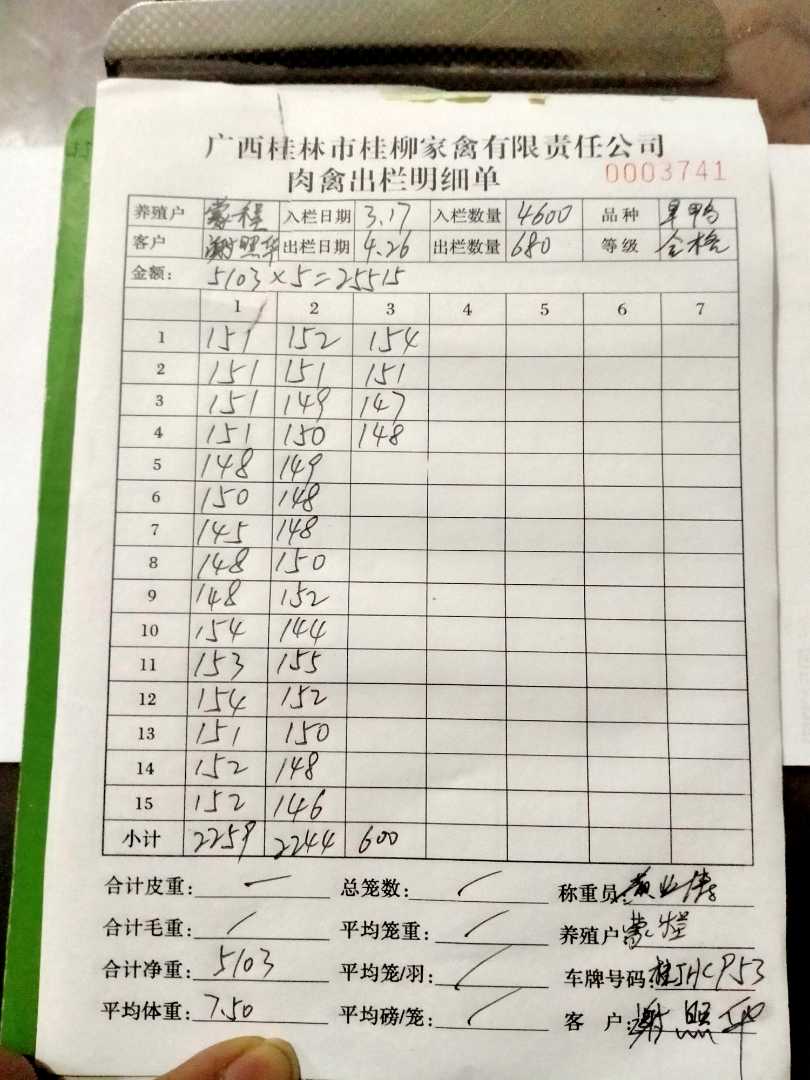 广西桂林市桂柳家禽有限责任公司
肉禽出栏明细单 0003741
养殖户 蒙程 入栏日期 3.17 入栏数量 4600 品种 旱鸭
客户 谢照华 出栏日期 4.26 出栏数量 680 等级 合格
金额: 5103×5=25515
1 2 3 4 5 6 7
1 151 152 154
2 151 151 151
3 151 149 147
4 151 150 148
5 148 149
6 150 148
7 145 148
8 148 150
9 148 152
10 154 144
11 153 155
12 154 152
13 151 150
14 152 148
15 152 146
小计 2259 2244 600
合计皮重: 一 总笼数: / 称重员:
合计毛重: / 平均笼重: / 养殖户:蒙程
合计净重: 5103 平均笼/羽: / 车牌号码:桂JHCP53
平均体重: 7.50 平均磅/笼: / 客户:谢照华